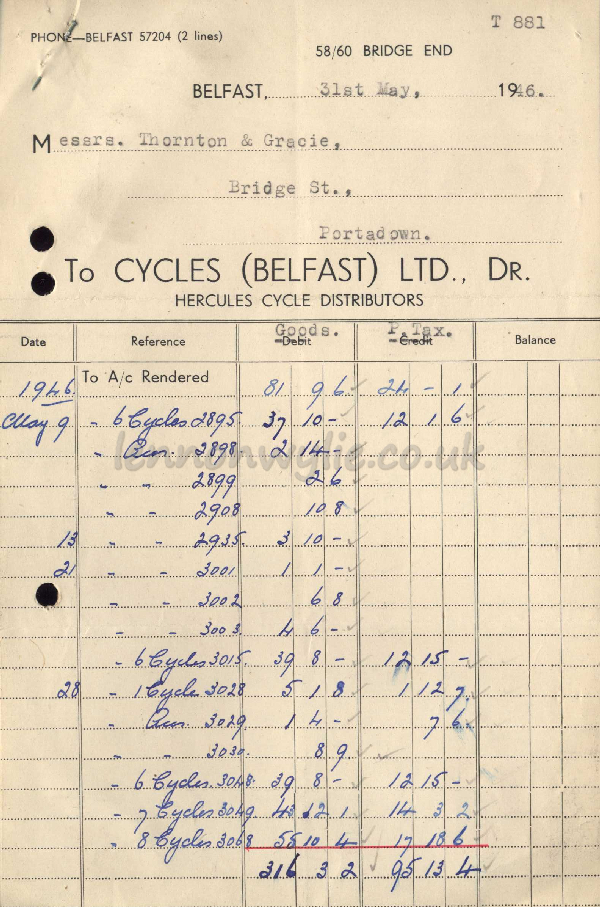 T 881
PHONE—BELFAST 57204 (2 lines)
58/60 BRIDGE END
BELFAST, 31st May, 1946.
Messrs. Thornton & Gracie,
Bridge St.,
Portadown.
To CYCLES (BELFAST) LTD., DR.
HERCULES CYCLE DISTRIBUTORS
Goods. P. Tax.
Date Reference Debit Credit Balance
1946. To A/c Rendered 81 9 6 24 - 1
May 9 " 6 Cycles 2895. 37 10 - 12 1 6
" 2898. 2 14 -
lennonwylie.co.uk
" " 2899 2 6
" " 2908 10 8
13 " " 2935. 3 10 -
21 " " 3001 1 1 -
" " 3002 6 8
" " 3003. 4 6 -
" 6 Cycles 3015. 39 8 - 12 15 -
28 " 1 Cycle 3028 5 1 8 1 12 7
" 3029 1 4 - 7 6
" " 3030. 8 9
" 6 Cycles. 3048. 39 8 - 12 15 -
" 7 Cycles 3049 43 12 1 14 3 2
" 8 Cycles 3068 55 10 4 17 18 6
316 3 2 95 13 4